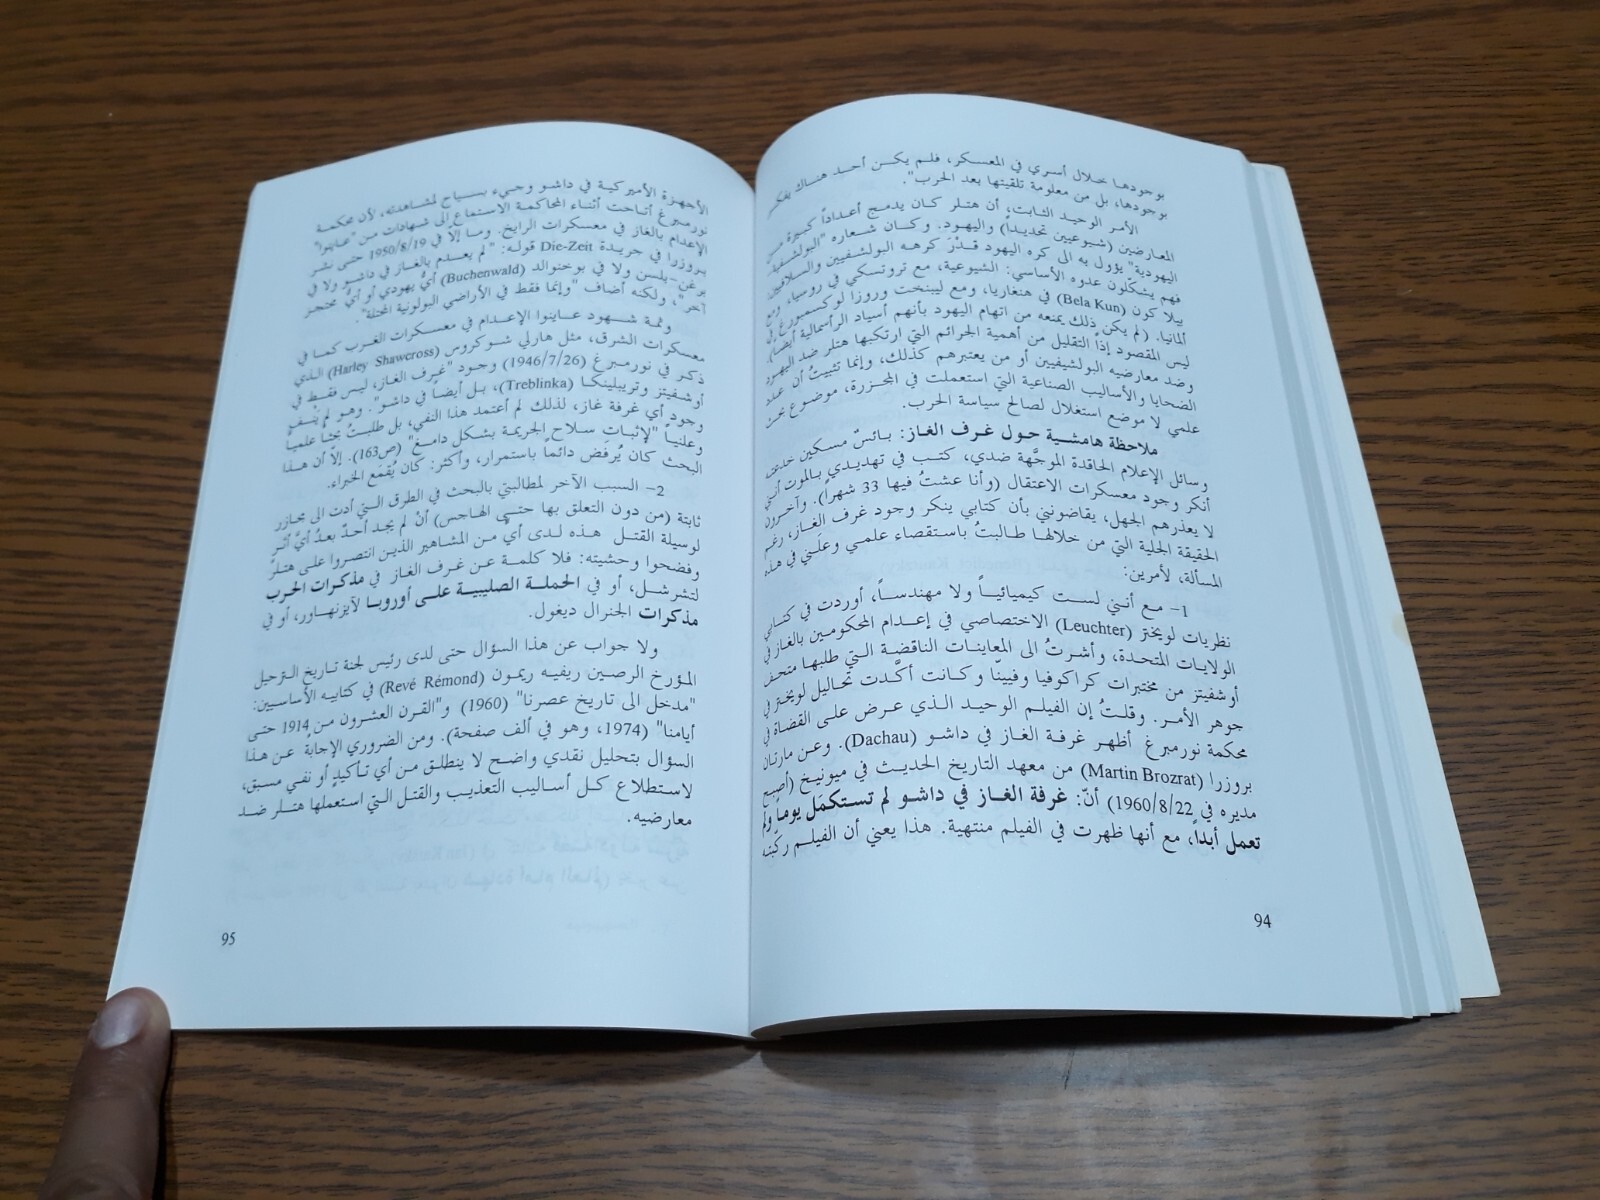 بوجودها خلال أسري في المعسكر، فلم يكن أحد هناك يفكر
بوجودها، بل من معلومة تلقيتها بعد الحرب".
الأمر الوحيد الثابت، أن هتلر كان يدمج أعداداً كبيرة من
المعارضين (شيوعيين تحديداً) واليهود. وكان شعاره "البولشفية
اليهودية" يؤول به الى كره اليهود قدْرَ كرهه البولشفيين والسلافيين.
فهم يشكّلون عدوه الأساسي: الشيوعية، مع تروتسكي في روسيا، ومع
بيلا كون (Bela Kun) في هنغاريا، ومع ليبنخت وروزا لوكسمبورغ في
ألمانيا. (لم يكن ذلك يمنعه من اتهام اليهود بأنهم أسياد الرأسمالية أيضاً).
ليس المقصود إذاً التقليل من أهمية الجرائم التي ارتكبها هتلر ضد اليهود
وضد معارضيه البولشيفيين أو من يعتبرهم كذلك، وإنما تثبيتُ أن عدد
الضحايا والأساليب الصناعية التي استعملت في المجزرة، موضوع بحث
علمي لا موضع استغلال لصالح سياسة الحرب.
ملاحظة هامشية حول غرف الغاز: بائسٌ مسكين خدعته
وسائل الإعلام الحاقدة الموجَّهة ضدي، كتب في تهديدي بالموت أنني
أنكر وجود معسكرات الاعتقال (وأنا عشتُ فيها 33 شهراً). وآخرون
لا يعذرهم الجهل، يقاضونني بأن كتابي ينكر وجود غرف الغاز، رغم
الحقيقة الجلية التي من خلالها طالبتُ باستقصاء علمي وعلَني في هذه
المسألة، لأمرين:
1- مع أنني لست كيميائياً ولا مهندساً، أوردت في كتابي
نظريات لويختر (Leuchter) الاختصاصي في إعدام المحكومين بالغاز في
الولايات المتحدة، وأشرتُ الى المعاينات الناقضة التي طلبها متحف
أوشفيتز من مختبرات كراكوفيا وفيينّا وكانت أكّدت تحاليل لويختر في
جوهر الأمر. وقلتُ إن الفيلم الوحيد الذي عرض على القضاة في
محكمة نورمبرغ أظهر غرفة الغاز في داشو (Dachau). وعن مارتان
بروزرا (Martin Brozrat) من معهد التاريخ الحديث في ميونيخ (أصبح
مديره في 1960/8/22) أنّ: غرفة الغاز في داشو لم تستكمَل يوماً ولم
تعمل أبداً، مع أنها ظهرت في الفيلم منتهية. هذا يعني أن الفيلم ركّبته
94
الأجهزة الأميركية في داشو وجيء بسياح لمشاهدته، لأن محكمة
نورمبرغ أتاحت أثناء المحاكمة الاستماع الى شهادات من "عاينوا"
الإعدام بالغاز في معسكرات الرايخ. وما إلاّ في 1950/8/19 حتى نشر
بروزرا في جريدة Die-Zeit قوله: "لم يعدم بالغاز في داشو ولا في
برغن-بلسن ولا في بوخنوالد (Buchenwald) أيُّ يهودي أو أيُّ محتجز
آخر"، ولكنه أضاف "وإنما فقط في الأراضي البولونية المحتلة".
وثمة شهود عاينوا الإعدام في معسكرات الغرب كما في
معسكرات الشرق، مثل هارلي شوكروس (Harley Shawcross) الذي
ذكر في نورمبرغ (1946/7/26) وجود "غرف الغاز، ليس فقط في
أوشفيتز وتريبلينكا (Treblinka)، بل أيضاً في داشو". وهو لم ينفِ
وجود أي غرفة غاز، لذلك لم أعتمد هذا النفي، بل طلبتُ بحثا علمياً
وعلنياً "لإثبات سلاح الجريمة بشكلٍ دامغ" (ص163). إلاّ أن هذا
البحث كان يُرفَض دائما باستمرار، وأكثر: كان يُقمَع الخبراء.
2- السبب الآخر لمطالبتي بالبحث في الطرق التي أدت الى مجازر
ثابتة (من دون التعلق بها حتى الهاجس) أنْ لم يجد أحدٌ بعدُ أيَّ أثر
لوسيلة القتل هذه لدى أيٍ من المشاهير الذين انتصروا على هتلر
وفضحوا وحشيته: فلا كلمة عن غرف الغاز في مذكرات الحرب
لتشرشل، أو في الحملة الصليبية على أوروبا لآيزنهاور، أو في
مذكرات الجنرال ديغول.
ولا جواب عن هذا السؤال حتى لدى رئيس لجنة تاريخ الترحيل
المؤرخ الرصين ريفيه ريمون (Revé Rémond) في كتابيه الأساسيين:
"مدخل الى تاريخ عصرنا" (1960) و"القرن العشرون من 1914 حتى
أيامنا" (1974، وهو في ألف صفحة). ومن الضروري الإجابة عن هذا
السؤال بتحليل نقدي واضح لا ينطلق من أي تأكيدٍ أو نفي مسبق،
لاستطلاع كل أساليب التعذيب والقتل التي استعملها هتلر ضد
معارضيه.
95